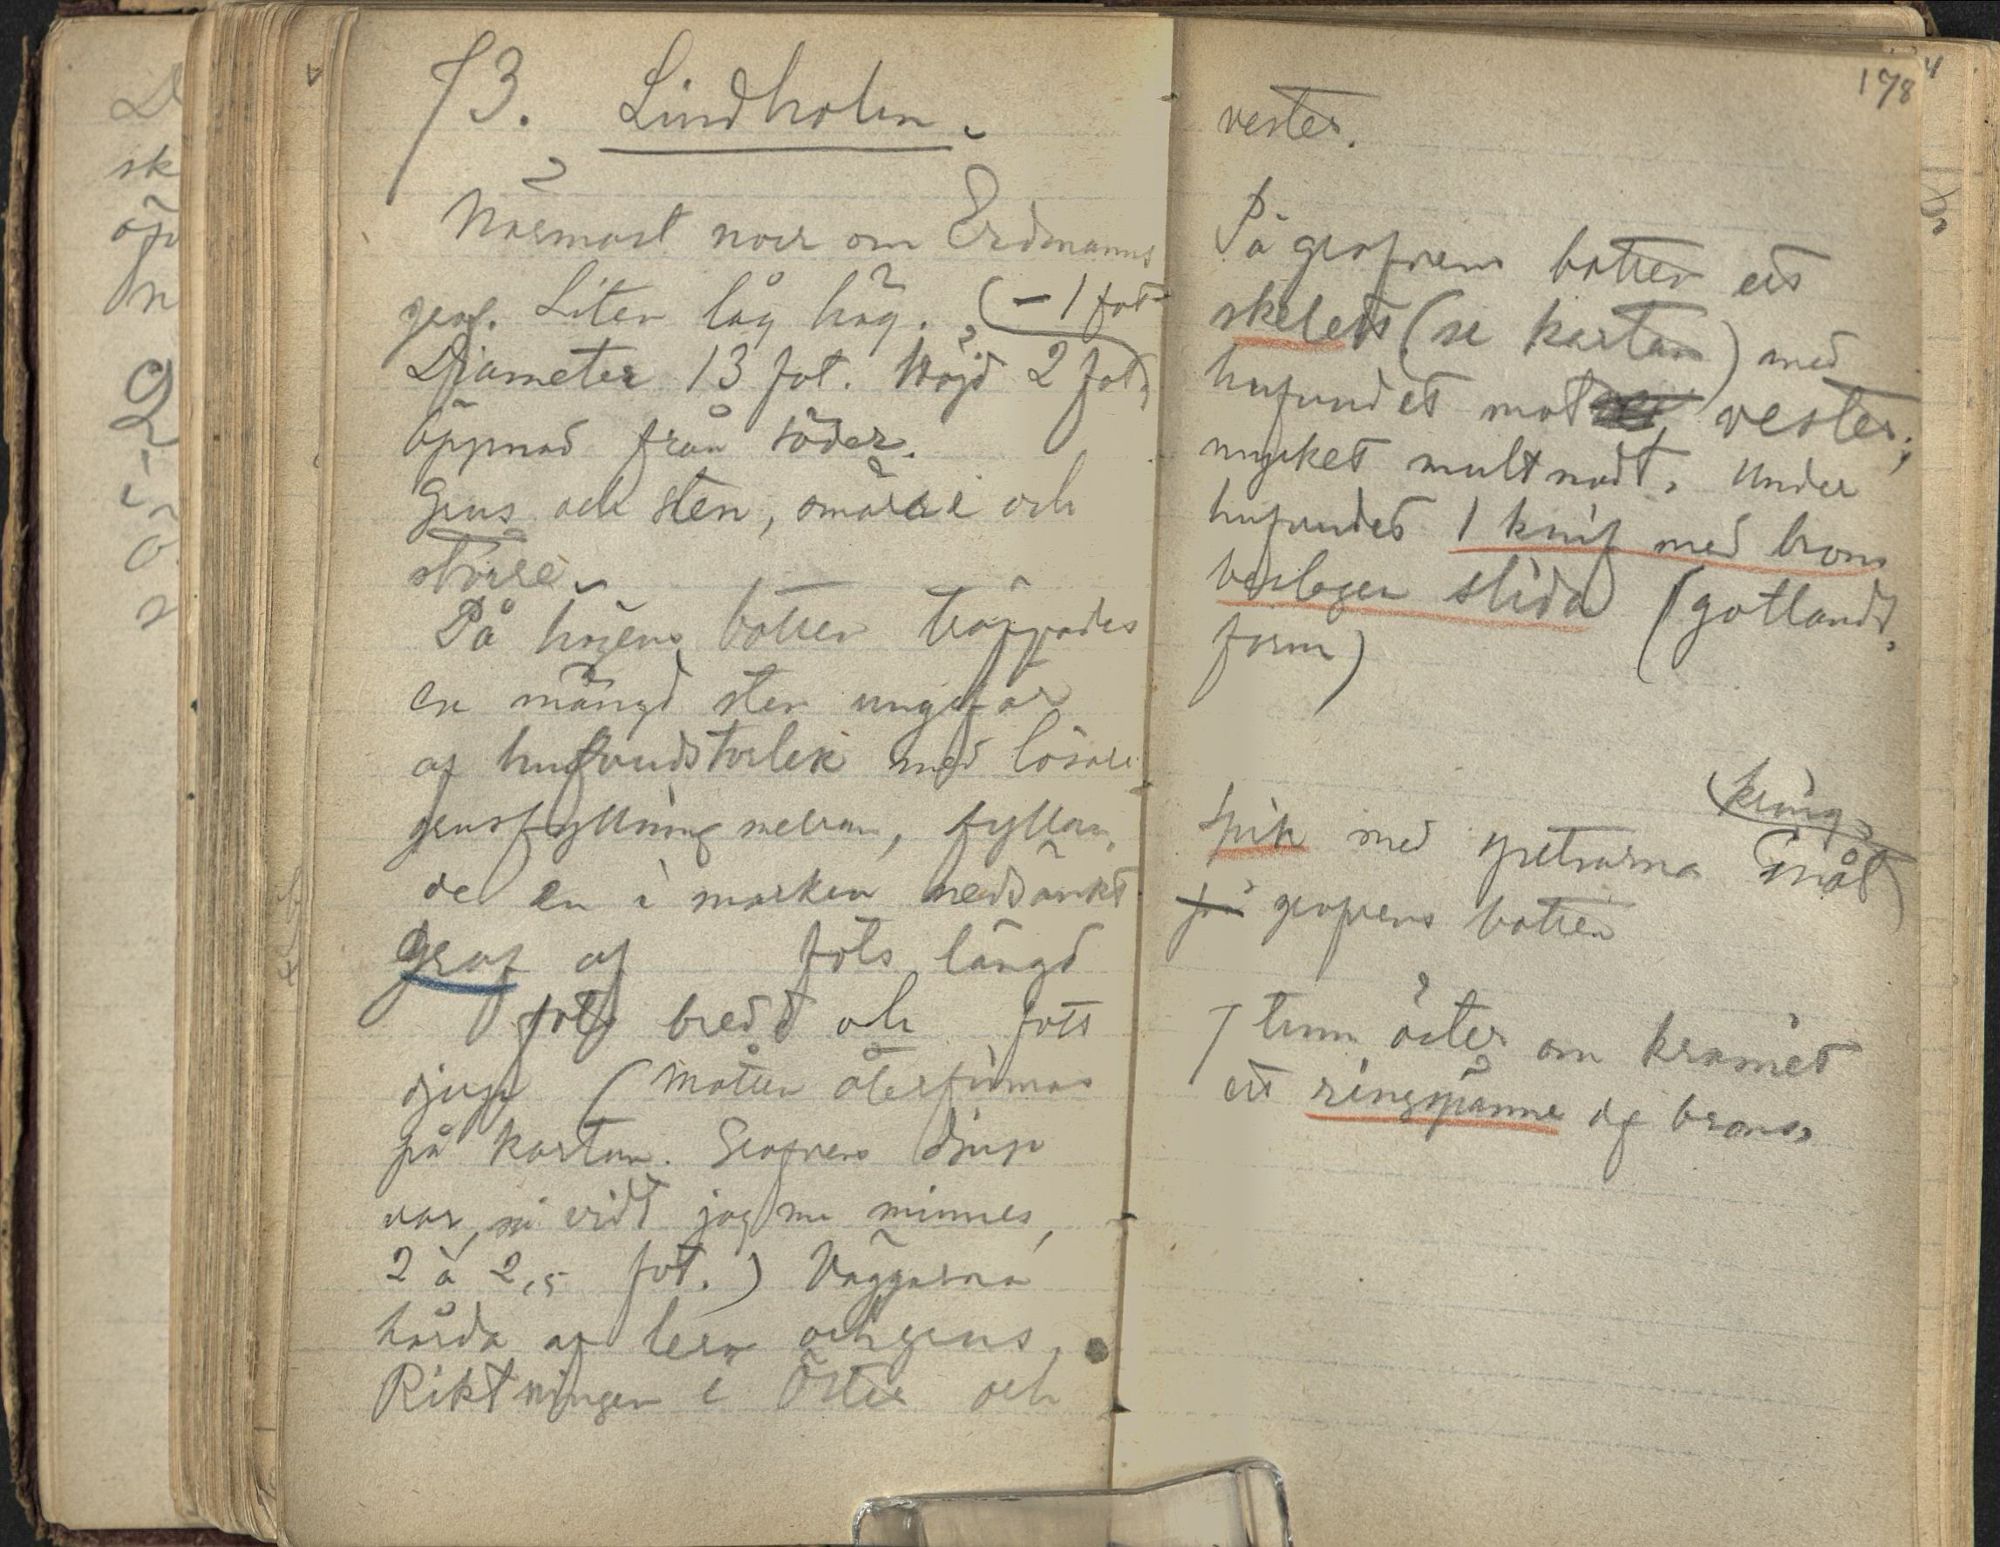 73. Lindholm.
Närmast norr om Erdmanns
graf. Liten låg hög. (– 1 fot
Diameter 13 fot. Höjd 2 fot,
öppnad från söder.
Grus och sten, smärre och
större.
På högens botten träffades
en mängd sten ungefär
af hufvudstorlek med lösare
grusfyllning mellan, fyllan,
de en i marken nedsänkt
graf af fots längd
fots bredd och fots
djup (måtten återfinnas
på kartan. Grafvens djup
var, så vidt jag nu minnes,
2 à 2,5 fot.) Väggarna
hårda af lera och grus.
Riktningen i Öster och
178
vester.
På grafvens botten ett
skelett (se kartan) med
hufvudet mot vester;
mycket multnadt. Under
hufvudet 1 knif med brons
beslagen slida (gotländs,
form)
(kring
Spik med spetsarna inåt)
på grafvens botten
1 tum öster om kraniet
ett ringspänne af brons,